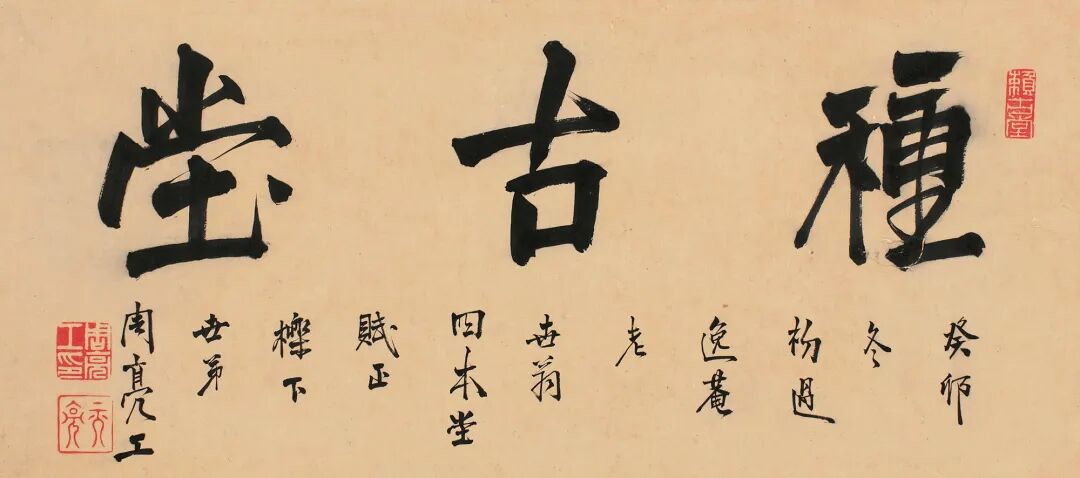 賴古堂
種古堂
癸卯
冬
過
逸菴
老
世翁
四本堂
賦正
櫟下
世弟
周亮工
周亮工印
元亮